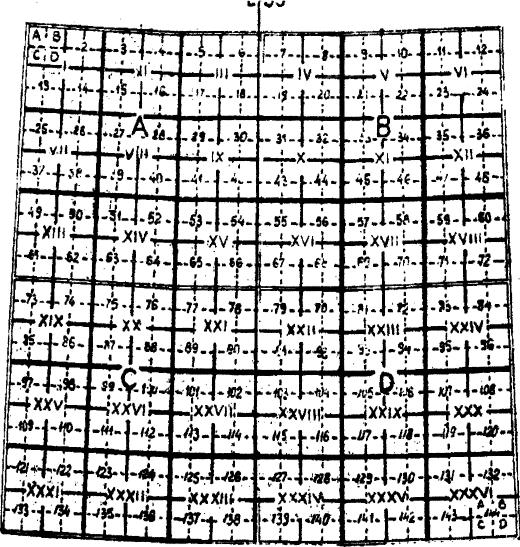 A B 2 3 4 5 6 7 8 9 10 11 12
C D XI III IV V VI
13 14 15 16 17 18 19 20 21 22 23 24
A B
25 26 27 28 29 30 31 32 34 35 36
VII VIII IX X XI XII
37 38 39 40 41 4 43 44 45 46 47 48
49 50 51 52 53 54 55 56 57 58 59 60
XIII XIV XV XVI XVII XVIII
61 62 63 64 65 66 67 68 69 70 71 72
73 74 75 76 77 78 79 80 81 82 83 84
XIX XX XXI XXII XXIII XXIV
85 86 87 88 89 90 91 92 93 94 95 96
C D
97 98 99 100 101 102 103 104 105 106 107 108
XXV XXVI XXVII XXVIII XXIX XXX
109 110 111 112 113 114 115 116 117 118 119 120
121 122 123 124 125 126 127 128 129 130 131 132
XXXI XXXII XXXIII XXXIV XXXV XXXVI
A B
133 134 135 136 137 138 139 140 141 142 143 144
C D